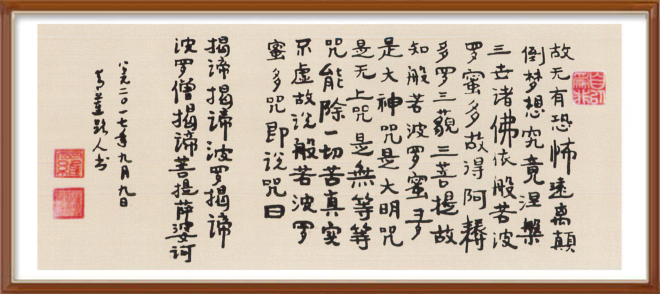 故无有恐怖远离颠
倒梦想究竟涅槃
三世诸佛依般若波
罗蜜多故得阿耨
多罗三藐三菩提故
知般若波罗蜜多
是大神咒是大明咒
是无上咒是無等等
咒能除一切苦真实
不虚故说般若波罗
蜜多咒即说咒曰
揭谛揭谛波罗揭谛
波罗僧揭谛菩提萨婆诃
公元二〇一七年九月九日
人书